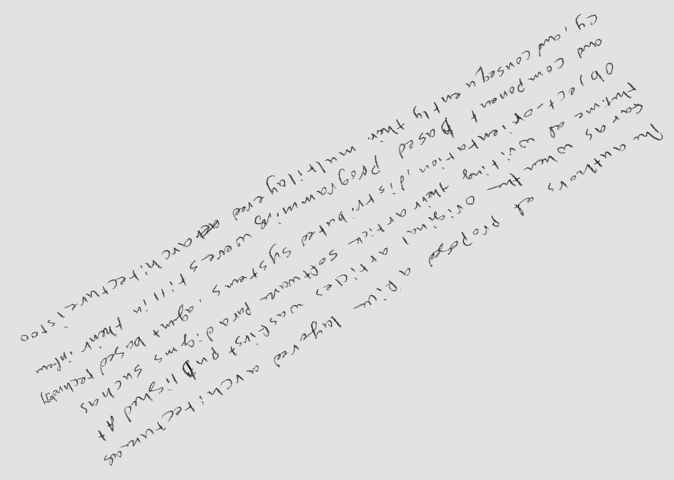 The authors at proposed a five layered architecture as
far as when the original articles was first published At
the time at writing their article software paradigms such as
Object-orientation, distributed systems, agent based technology
and component based programming were still in their infan
cy, and consequently their multilayered architecture is too